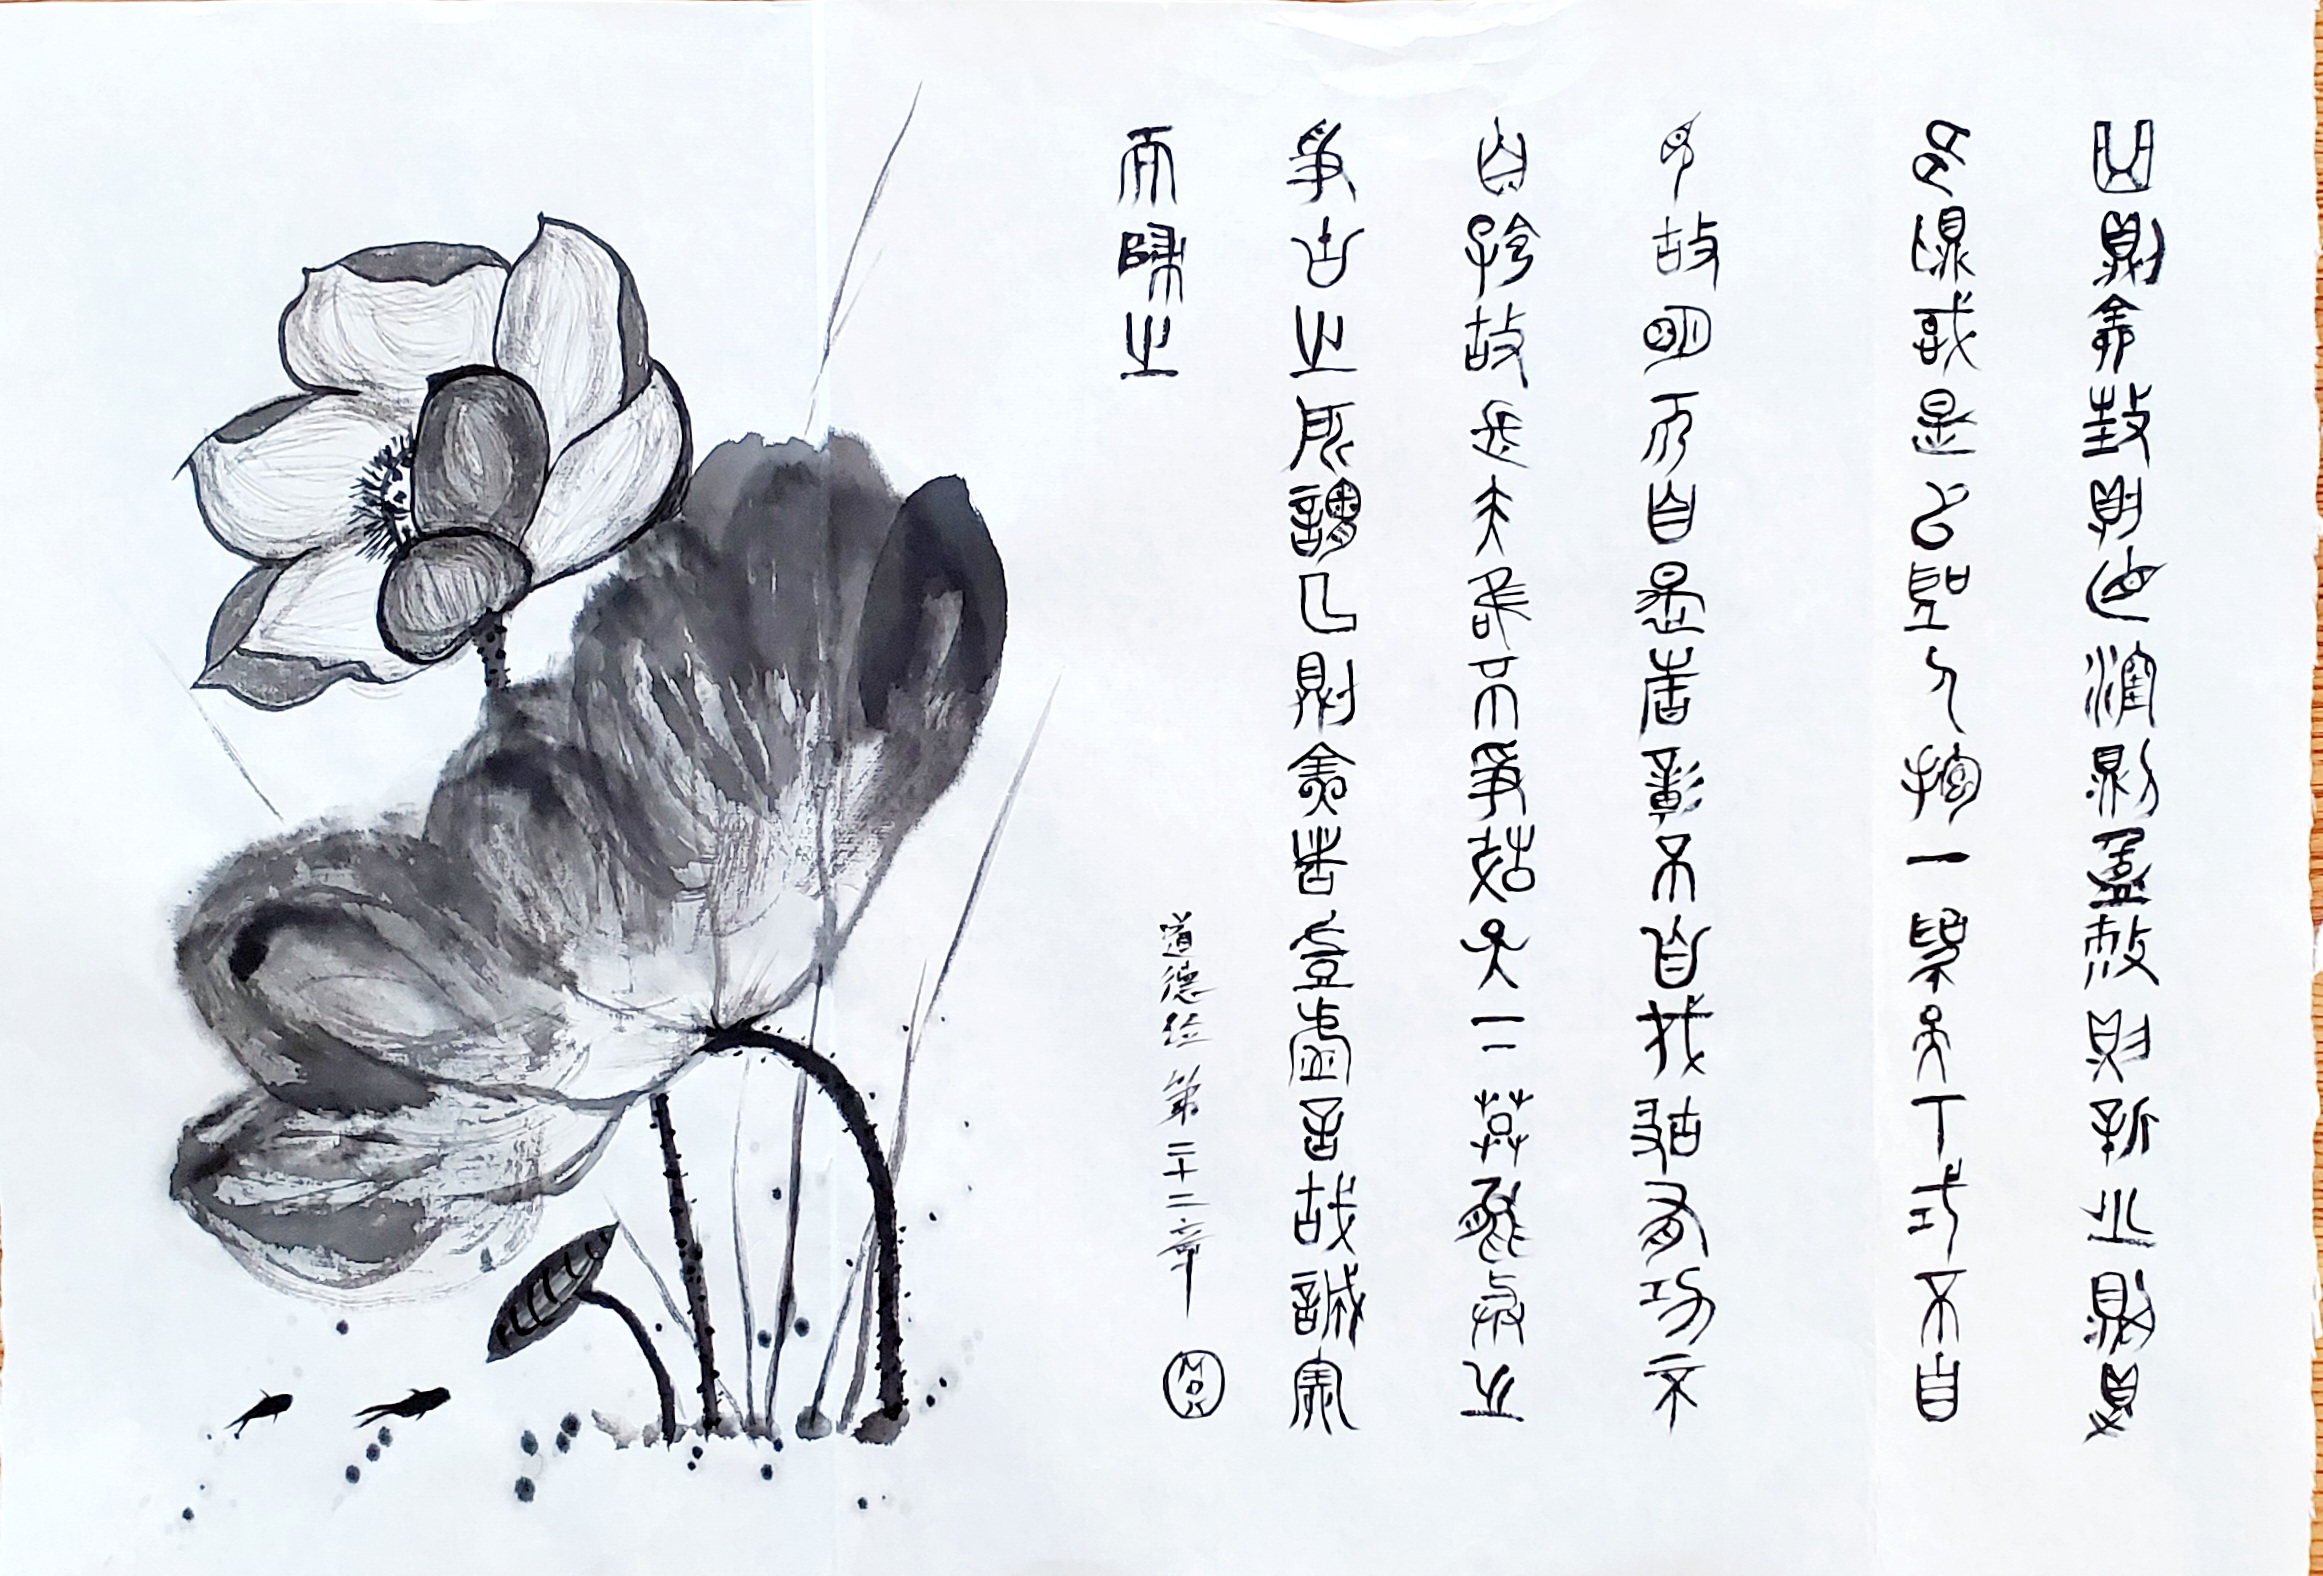 曲則全枉則直窪則盈敝則新少則得
多則惑是以聖人抱一為天下式不自
見故明不自是故彰不自伐故有功不
自矜故長夫唯不爭故天下莫能與之
爭古之所謂曲則全者豈虛言哉誠全
而歸之
道德经 第二十二章